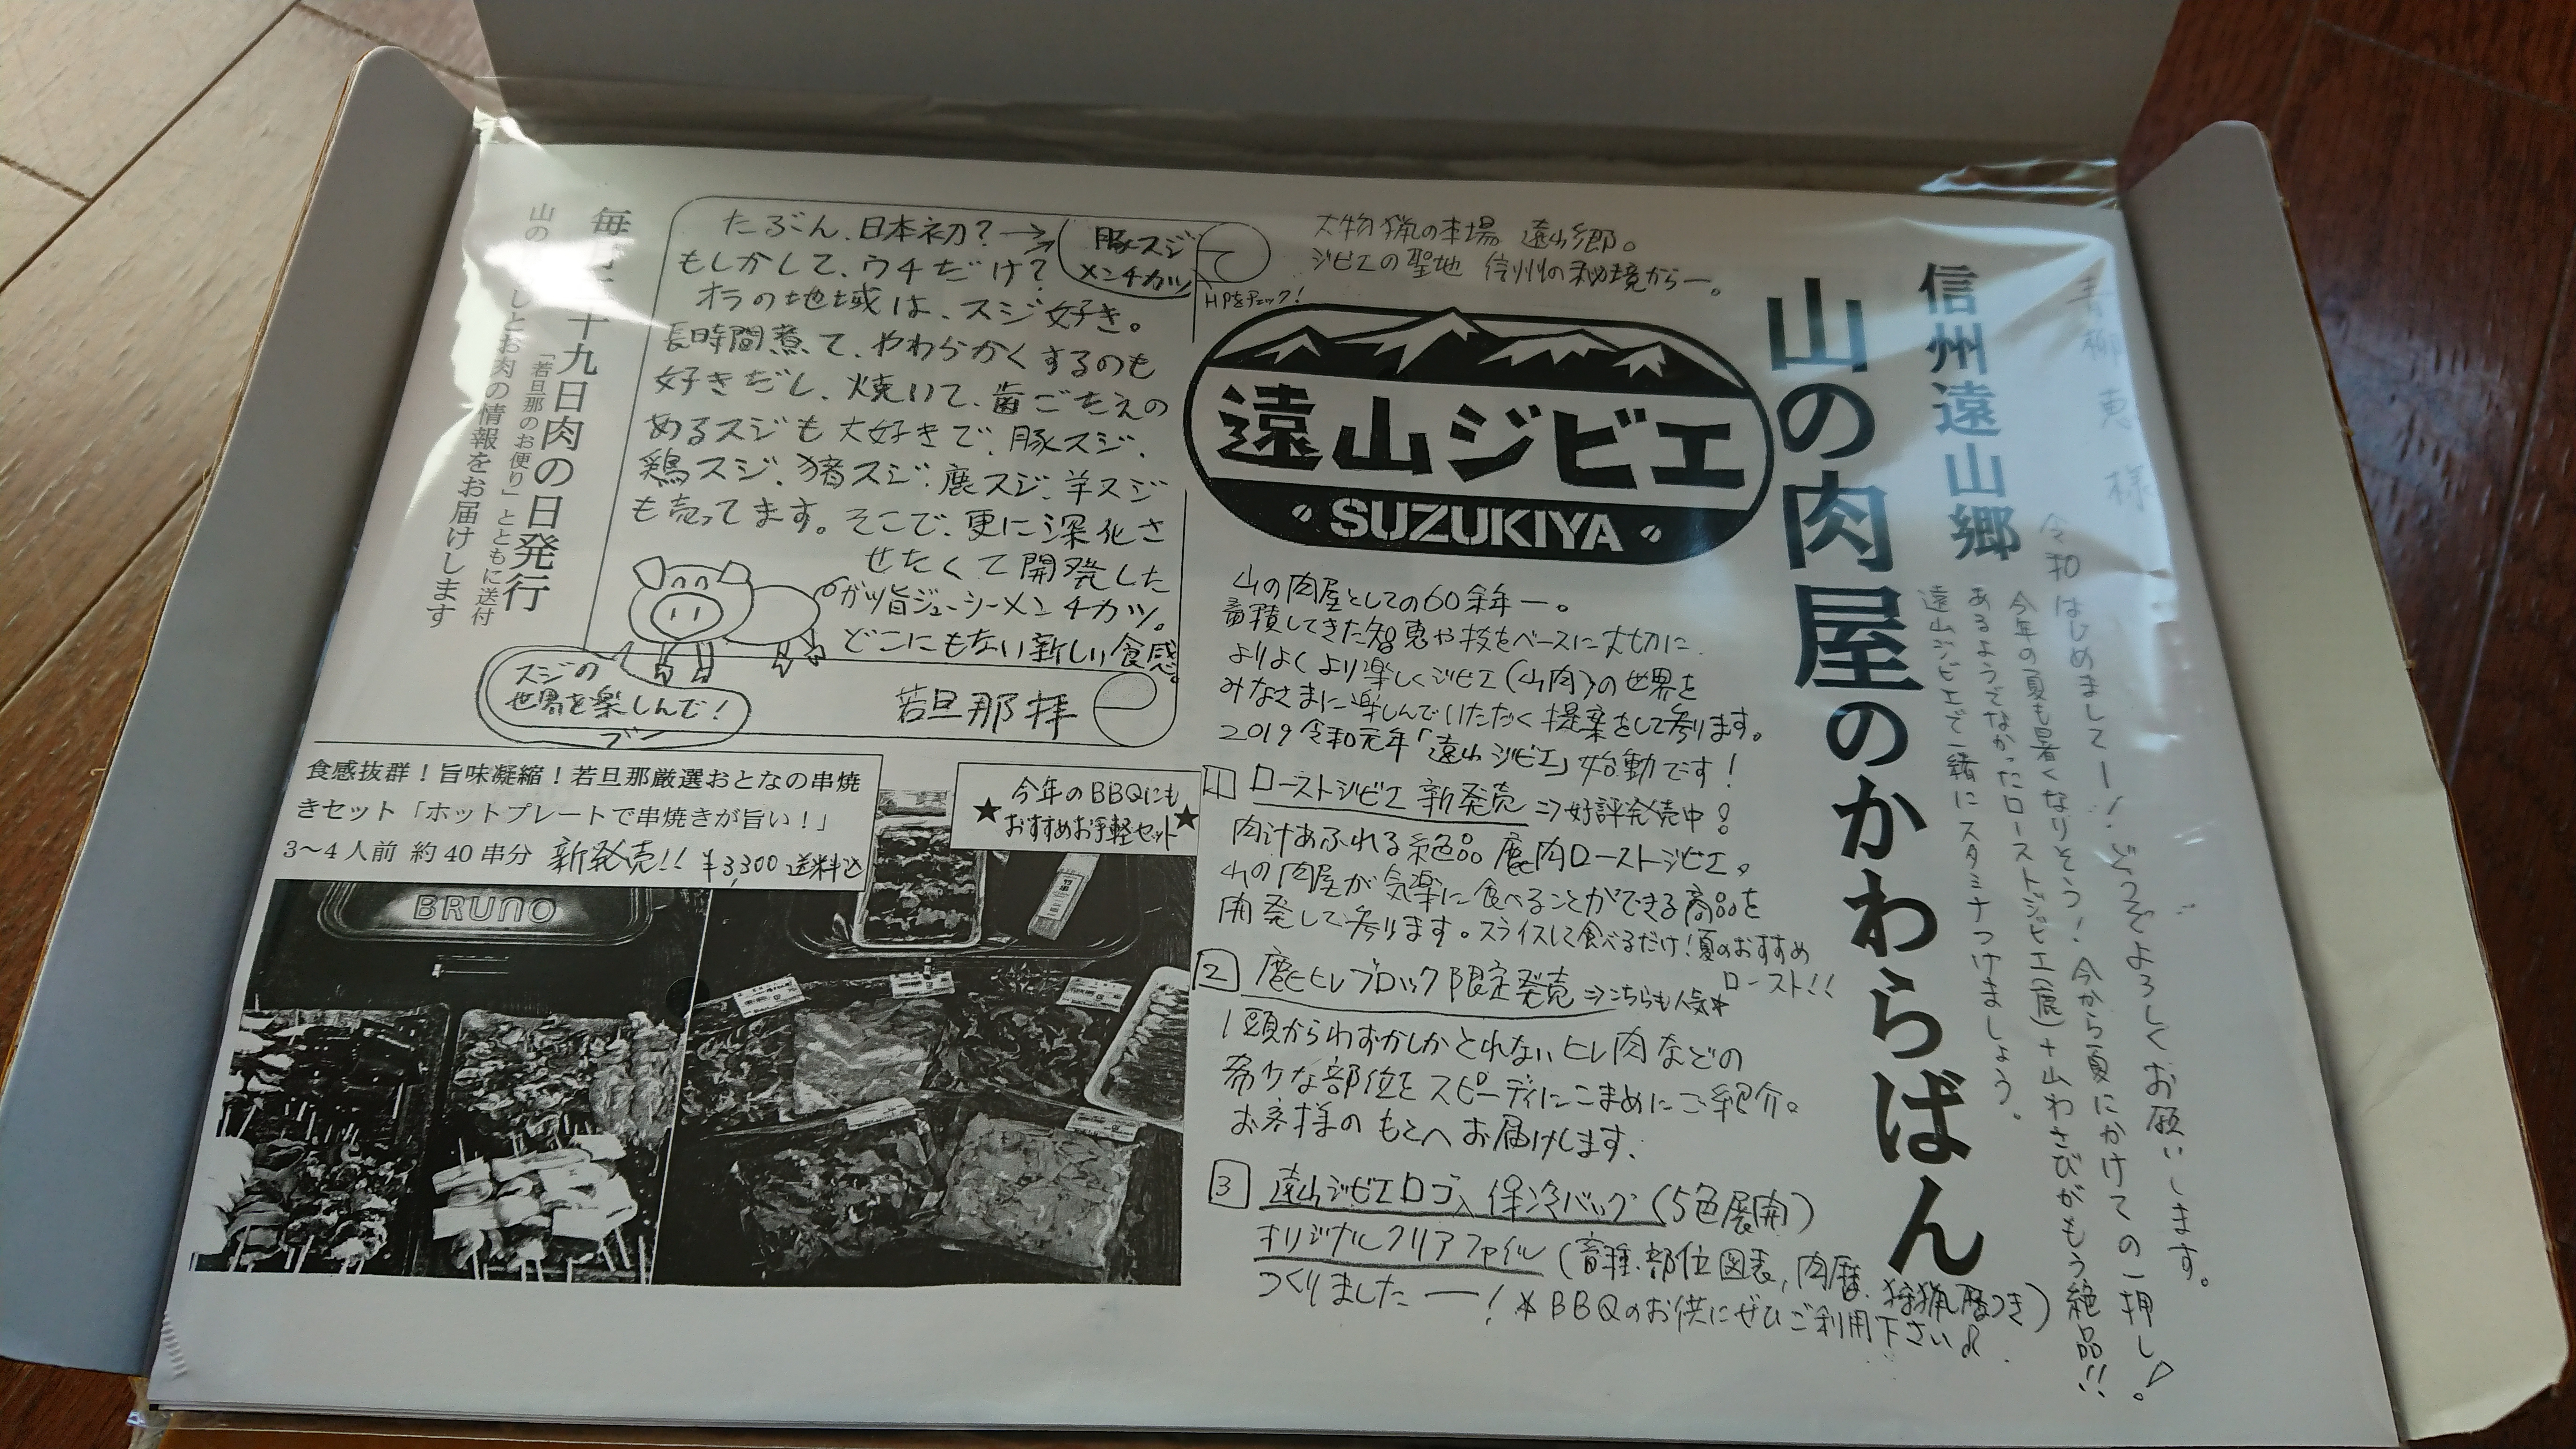 様
令和はじめましてー！どうぞよろしくお願いします。
今年の夏も暑くなりそう！今から夏にかけての一押し！
あるようでなかったローストジビエ(鹿)＋山わさびがもう絶品!!
遠山ジビエで一緒にスタミナつけましょう。
信州遠山郷
山の肉屋のかわらばん
大物猟の本場 遠山郷。
ジビエの聖地 信州の秘境からー。
遠山ジビエ
SUZUKIYA
山の肉屋としての60余年ー。
蓄積してきた智恵や技をベースに大切に
よりよくより楽しくジビエ(山肉)の世界を
みなさまに楽しんでいただく提案をして参ります。
2019令和元年「遠山ジビエ」始動です！
1 ローストジビエ 新発売 ⇒好評発売中！
肉汁あふれる絶品 鹿肉ローストジビエ。
山の肉屋が気楽に食べることができる商品を
開発して参ります。スライスして食べるだけ！夏のおすすめ
ロースト!!
2 鹿ヒレブロック限定発売 ⇒こちらも人気★
1頭からわずかしかとれないヒレ肉などの
希少な部位をスピーディにこまめにご紹介。
お客様のもとへお届けします。
3 遠山ジビエロゴ入保冷バッグ(5色展開)
オリジナルクリアファイル(畜種、部位図表、肉暦、狩猟暦つき)
つくりましたー！ ＊BBQのお供にぜひご利用下さい♪
たぶん、日本初？→ 豚スジ
メンチカツ
HPをチェック！
もしかして、ウチだけ？
オラの地域は、スジ好き。
長時間煮て、やわらかくするのも
好きだし、焼いて、歯ごたえの
あるスジも大好きで、豚スジ、
鶏スジ、猪スジ、鹿スジ、羊スジ
も売ってます。そこで、更に深化さ
せたくて開発した
ガツ旨ジューシーメンチカツ。
どこにもない新しい食感。
若旦那拝
スジの
世界を楽しんで！
ブー
十九日肉の日発行
「若旦那のお便り」とともに送付
しとお肉の情報をお届けします
食感抜群！旨味凝縮！若旦那厳選おとなの串焼
きセット「ホットプレートで串焼きが旨い！」
3～4人前 約40串分 新発売!! ¥3,300 送料込
★今年のBBQにも★
おすすめお手軽セット
BRUNO